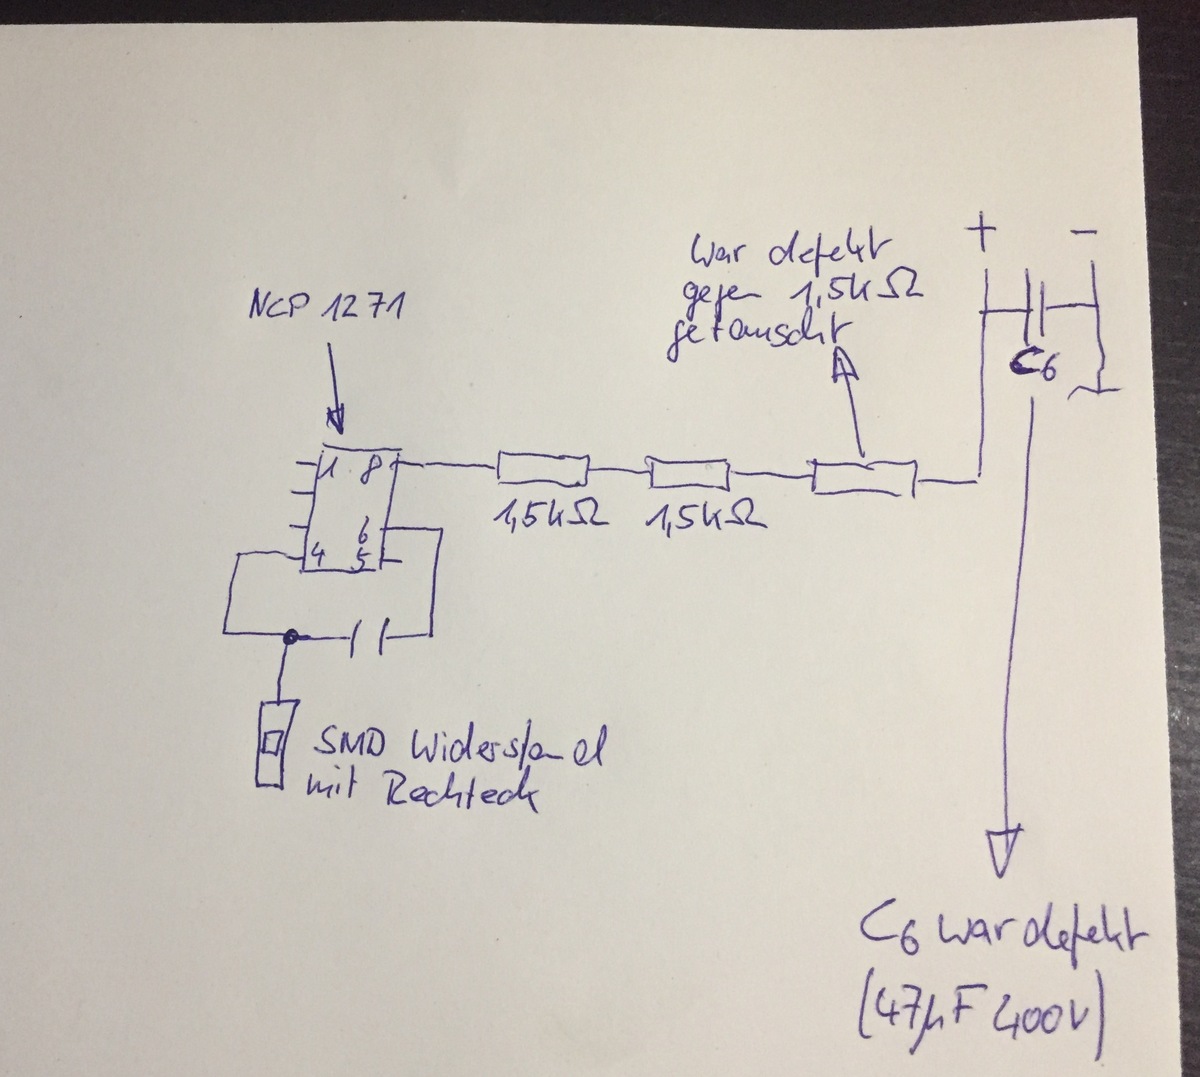 + −
war defekt
gegen 1,5kΩ
getauscht
NCP 1271
C6
1 8
6
4 5
1,5kΩ 1,5kΩ
SMD Widerstand
mit Rechteck
C6 war defekt
(47µF 400V)